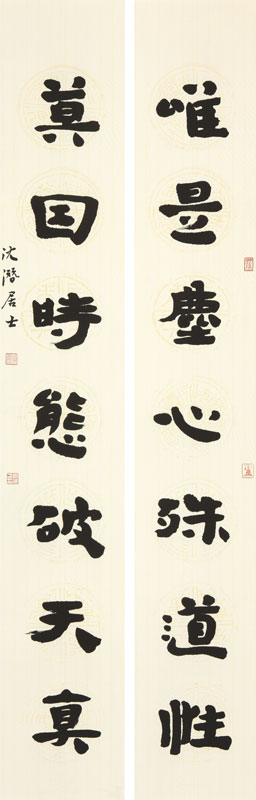 唯是塵心殊道性
莫因時態破天真
沈潛居士